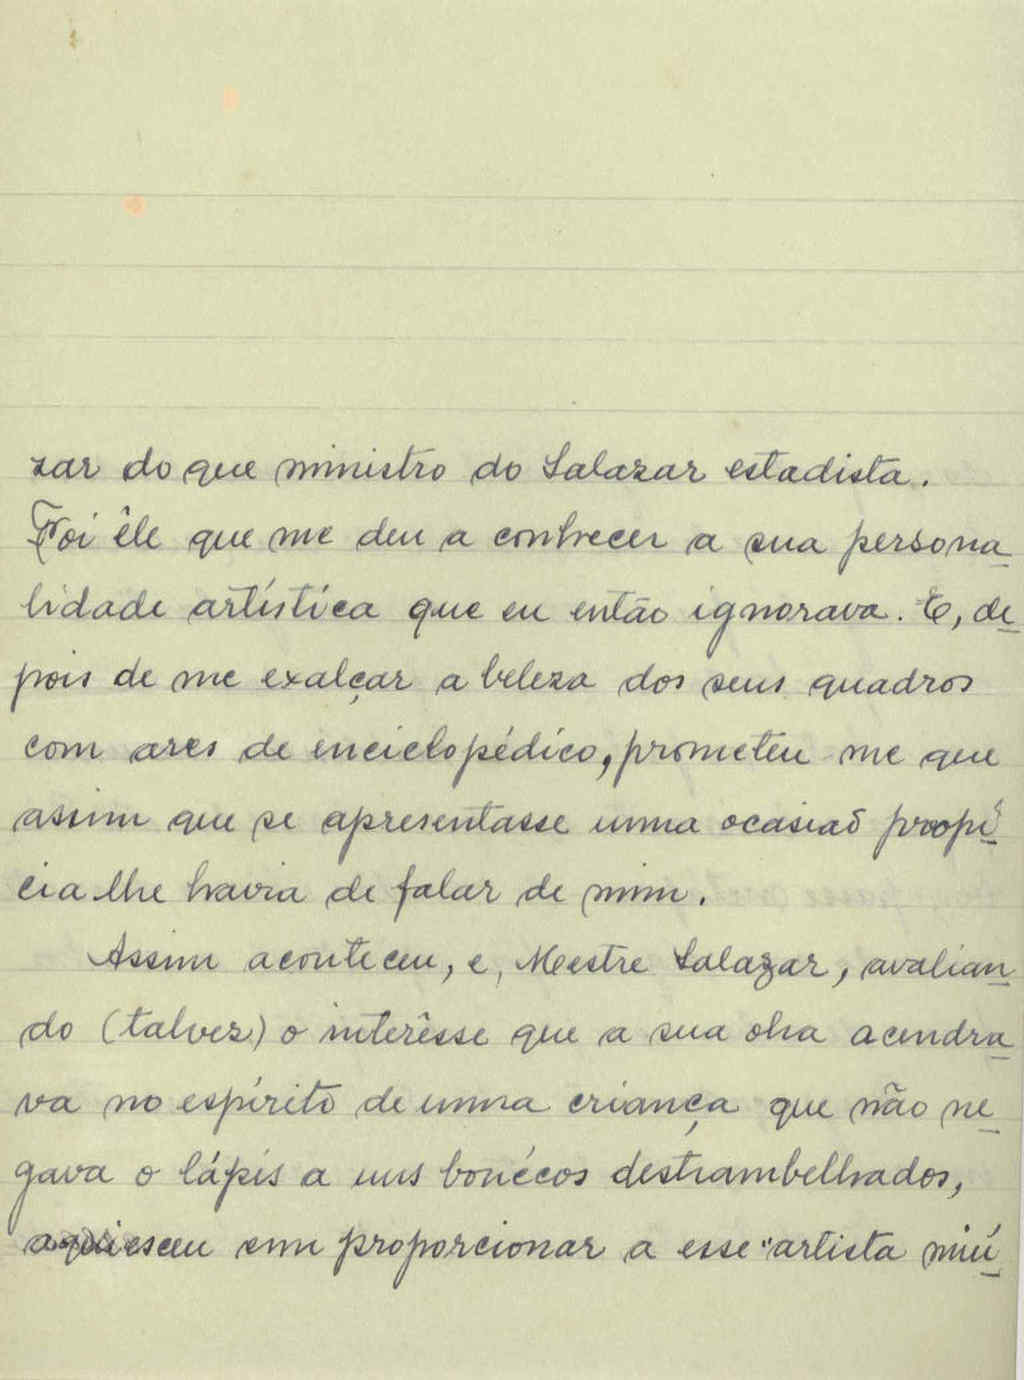 zar do que ministro do Salazar estadista.
Foi êle que me deu a conhecer a sua persona
lidade artística que eu então ignorava. E, de
pois de me exalçar a beleza dos seus quadros
com ares de enciclopédico, prometeu-me que
assim que se apresentasse uma ocasião propí
cia lhe havia de falar de mim.
Assim aconteceu, e, Mestre Salazar, avalian
do (talvez) o interêsse que a sua obra acendra
va no espírito de uma criança que não ne
gava o lápis a uns bonécos destrambelhados,
aquiesceu em proporcionar a esse "artista miú